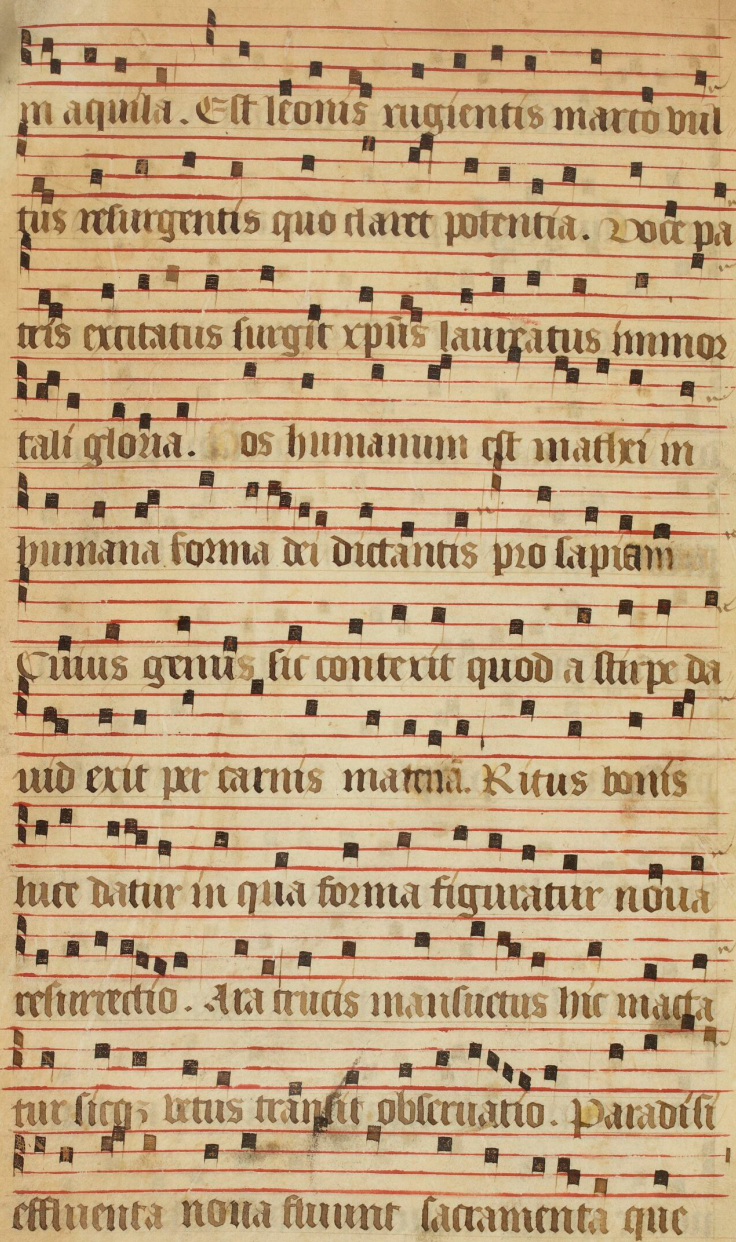 in aquila . Est leonis rugientis marco vul
tus resurgentis quo claret potentia . Voce pa
tris excitatus surgit xp̄us laureatus immor
tali gloria . Os humanum est mathei in
humana forma dei dictantis pro sapiam
Cuius genus sic contexit quod a stirpe da
uid exit per carnis materiā . Ritus bouis
luce datur in qua forma figuratur noua
resurrectio . Ara crucis mansuetus hic macta
tur sicqꝫ vetus transit obseruatio . Paradisi
effluenta noua fluunt sacramenta que